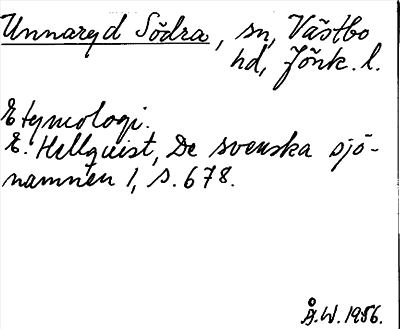 Unnaryd Södra, sn, Västbo
hd, Jönk. l.
Etymologi.
E. Hellquist, De svenska sjö-
namnen 1, s. 678.
Å.W. 1986.